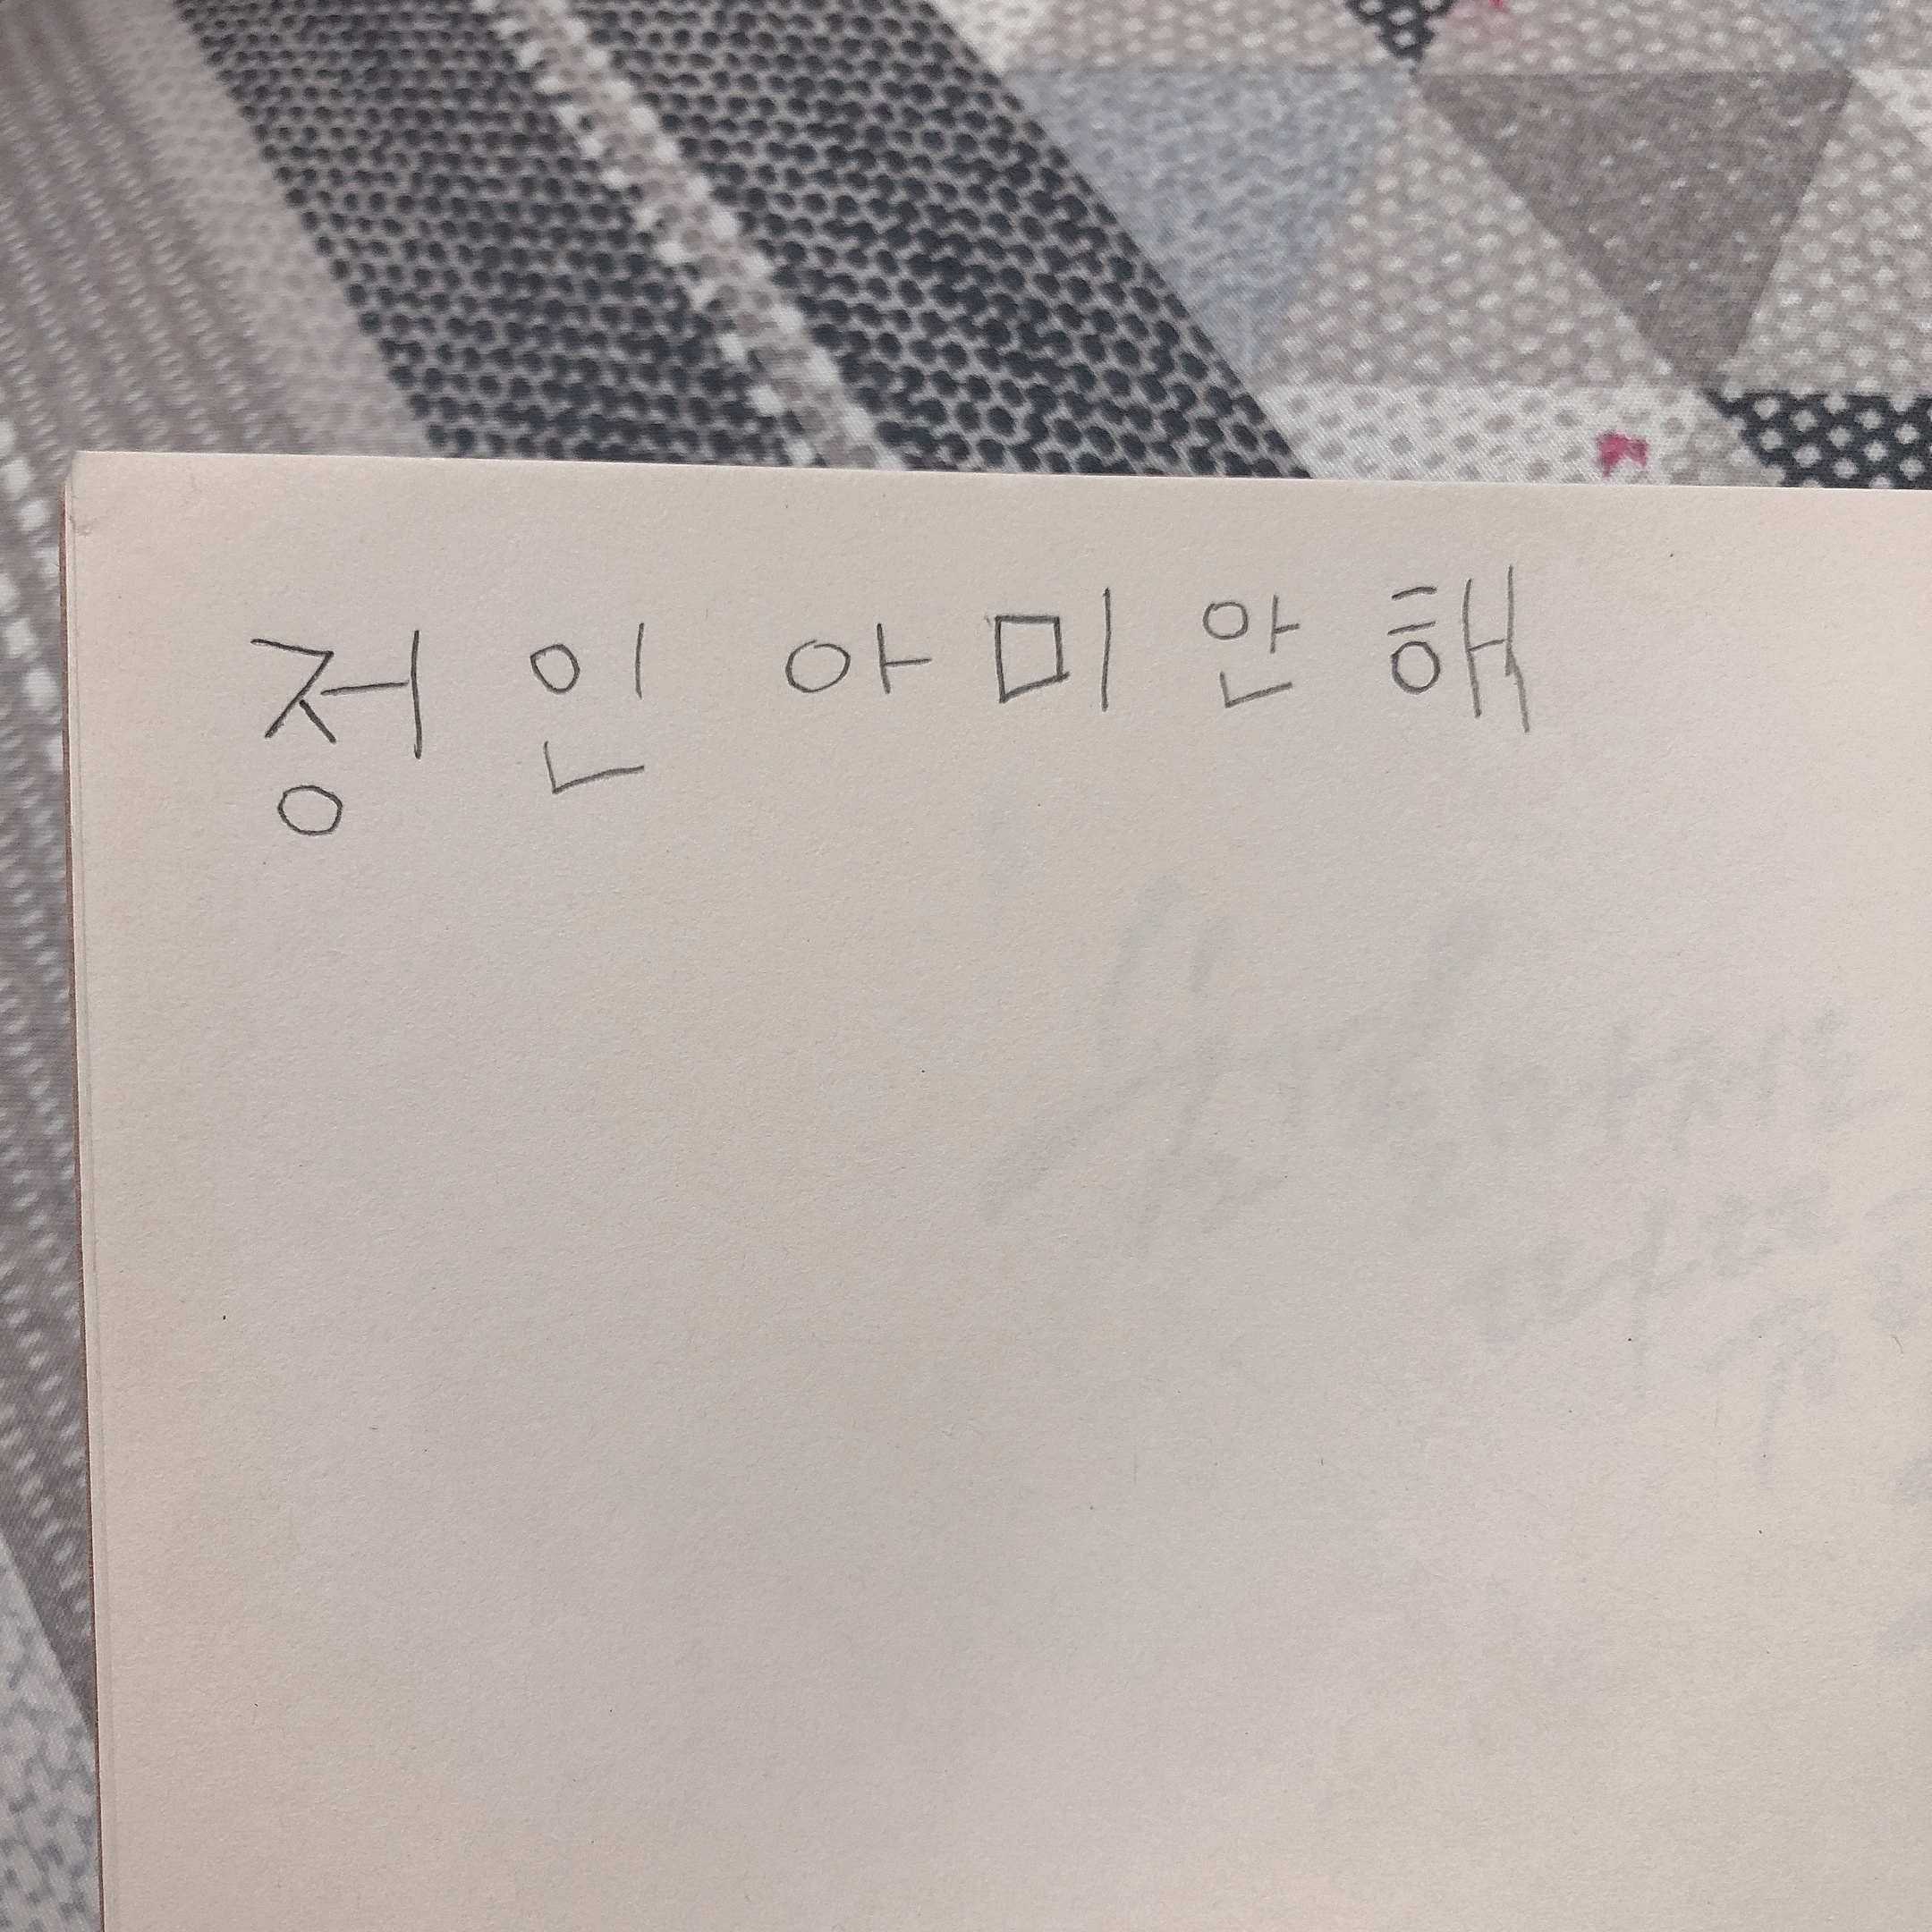 정인아미안해